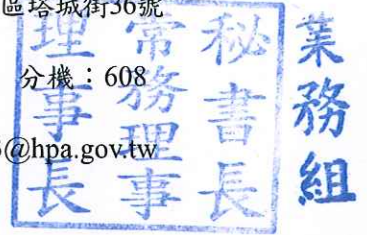 區塔城街36號
分機：608
@hpa.gov.tw
理事長
常務理事
秘書長
業務組